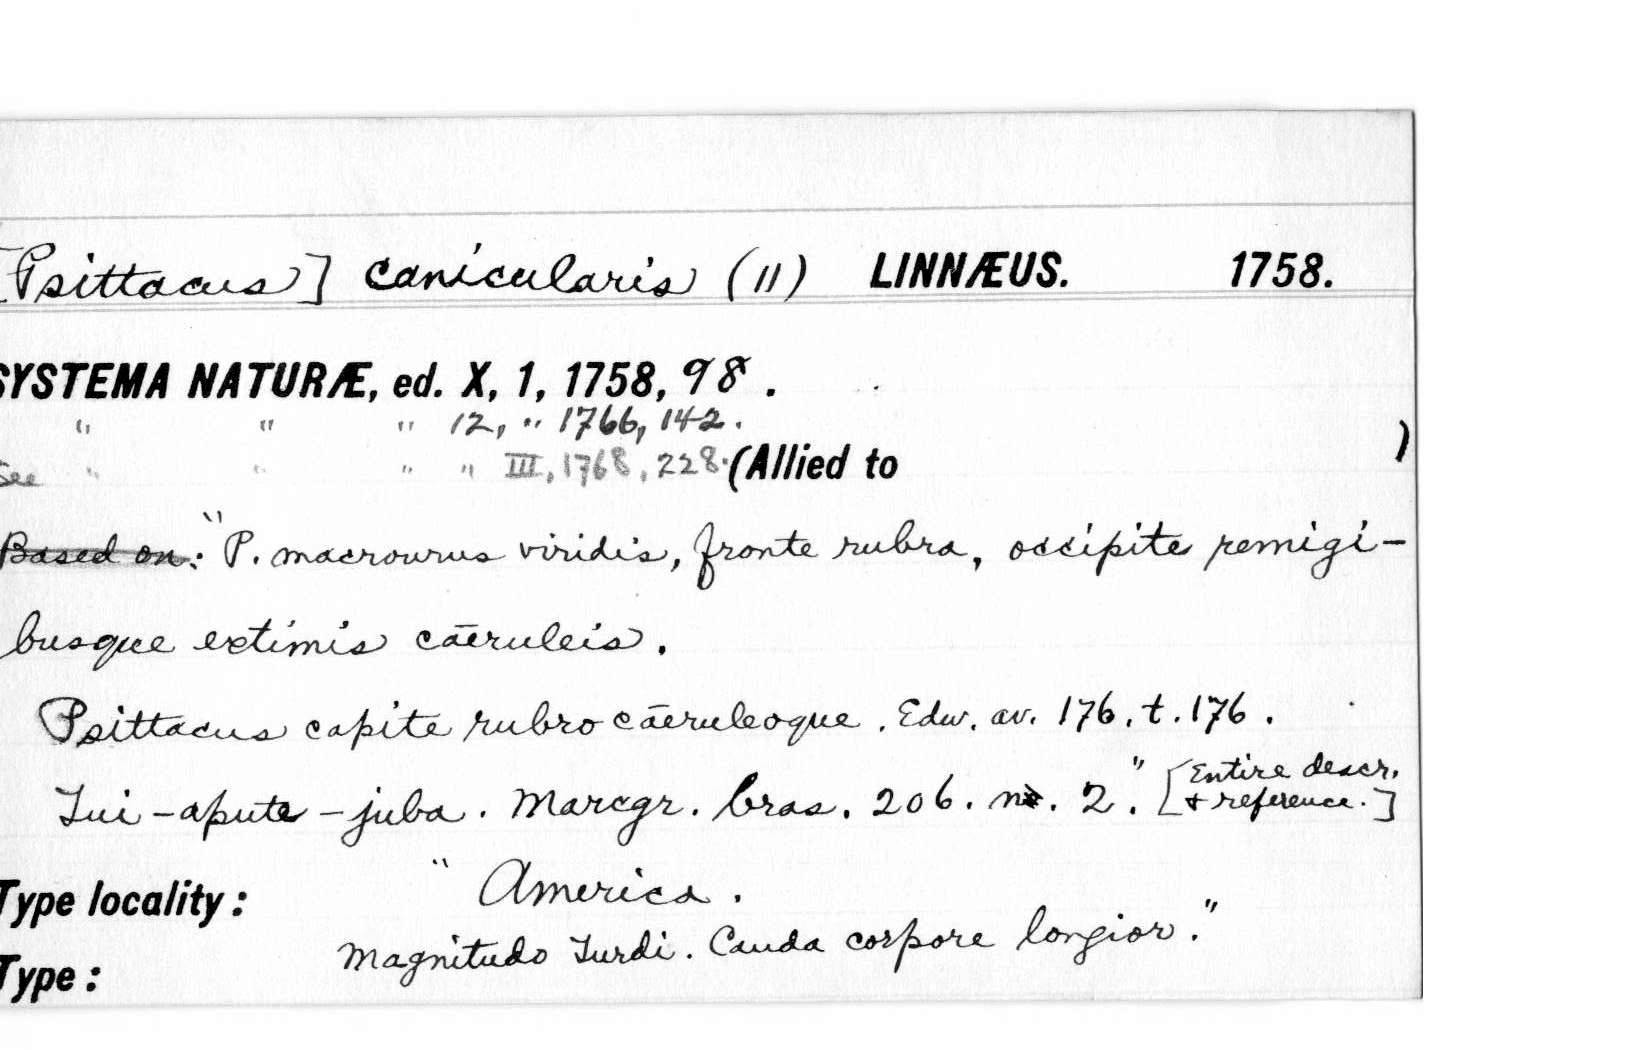 [Psittacus] canicularis (11) LINNÆUS. 1758.
SYSTEMA NATURÆ, ed. X, 1, 1758, 98.
" " " 12, " 1766, 142. )
See " " " " III, 1768, 228. (Allied to
Based on: "P. macrourus viridis, fronte rubra, occipite remigi-
busque extimis cæruleis.
Psittacus capite rubro cæruleoque. Edw. av. 176. t. 176.
Tui-apute-juba. Marcgr. bras. 206. n. 2." [Entire descr.
& reference.]
Type locality: "America.
Magnitudo Turdi. Cauda corpore longior."
Type: